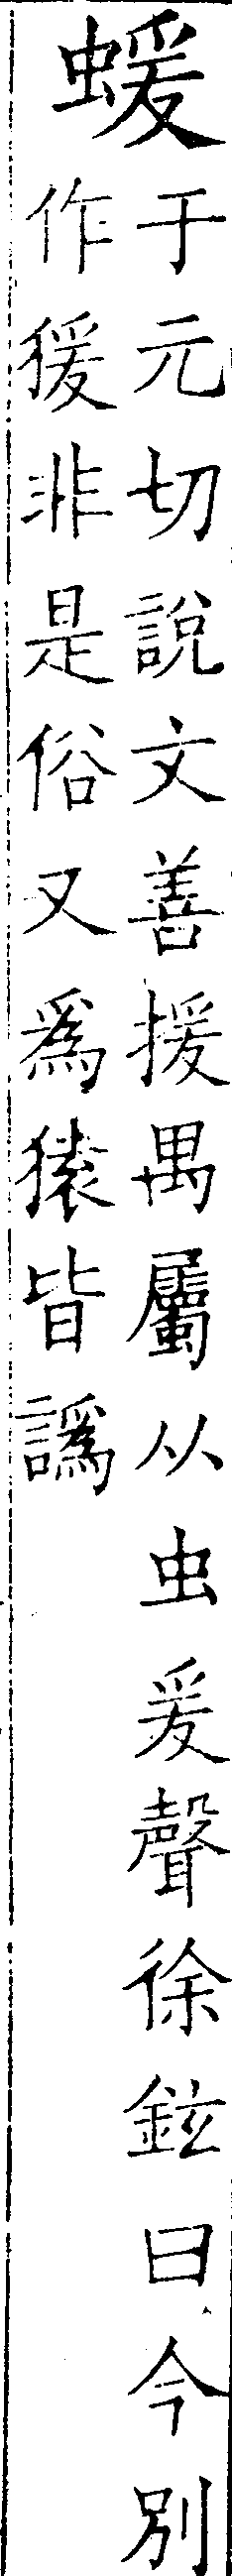 蝯
于元切說文善援禺屬从虫爰聲徐鉉曰今別
作猨非是俗又爲猿皆譌